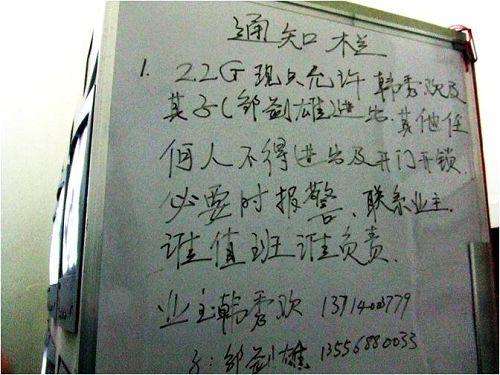 通知栏
1. 22G现只允许韩秀欢及
其子(邹剑雄)进出.其他任
何人不得进出及开门开锁.
必要时报警、联系业主.
谁值班谁负责.
业主韩秀欢
子:邹剑雄 13556880033